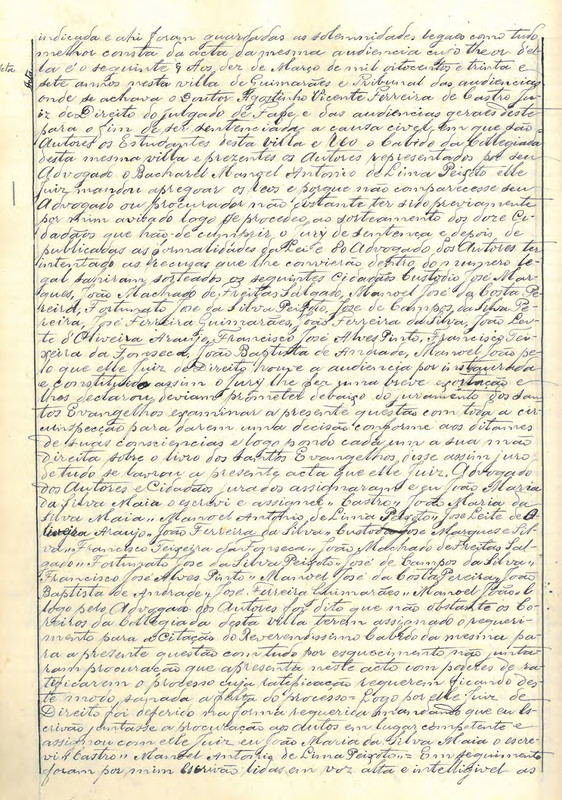 indicada e ahi foram guardadas as solemnidades legaes como tudo
melhor consta da acta da mesma audiencia cujo theor d'el
Acta
la é o seguinte Aos dez de Março de mil oitocentos e trinta e
sete annos nesta villa de Guimarães e Tribunal das audiencias
onde se achava o Doutor Agostinho Vicente Ferreira de Castro Ju
iz de Direito do julgado de Fafe, e das audiencias geraes deste
para o fim de ser sentenciada a causa civel, em que são
Autores os Estudantes desta villa e Reo o Cabido da Collegiada
desta mesma villa e prezentes os Autores representados por seu
Advogado o Bacharel Manoel Antonio de Lima Peixoto elle
Juiz mandou apregoar os Reos e porque não comparecesse seu
Advogado ou procurador não obstante ter sido previamente
por mim avizado logo se procedeo ao sorteamento dos doze Ci
dadãos que hão-de cumprir o Jury de sentença e depois de
publicadas as formalidades da Lei e do Advogado dos Autores ter
intentado as recusas que lhe convierão dentro do numero le
gal sahiram sorteados os seguintes Cidadãos Custodio José Mar
ques, João Machado de Freitas Salgado, Manoel José da Costa Pe
reira, Fortunato José da Silva Peixoto, José de Campos da Silva Pe
reira, José Ferreira Guimarães, João Ferreira da Silva, João Lei
te d'Oliveira Araujo, Francisco José Alves Pinto, Francisco Tei
xeira da Fonseca, João Baptista de Andrade, Manoel João pe
lo que elle Juiz de Direito houve a audiencia por instaurada
e constituido assim o Jury lhe fez uma breve exortação e
lhes declarou deviam prometer debaixo do juramento dos San
tos Evangelhos examinar a presente questão com toda a cir
cunspecção para darem uma decisão conforme aos ditames
de suas consciencias e logo pondo cada um a sua mão
direita sobre o livro dos Santos Evangelhos, disse assim juro
de tudo se lavrou a presente acta que elle Juiz, Advogado
dos Autores e Cidadãos jurados assignaram e eu João Maria
da Silva Maia o escrevi e assignei " Castro " João Maria da
Silva Maia " Manoel Antonio de Lima Peixoto " José Leite de O
liveira Araujo " João Ferreira da Silva " Custodio José Marques e Sil
va " Francisco Teixeira da Fonseca " João Machado de Freitas Sal
gado " Fortunato José da Silva Peixoto " José de Campos da Silva "
Francisco José Alves Pinto " Manoel José da Costa Pereira " João
Baptista de Andrade " José Ferreira Guimarães " Manoel João. E
logo pelo Advogado dos Autores foi dito que não obstante os Co
reiros da Collegiada desta villa terem assignado o requeri
mento para a Citação do Reverendissimo Cabido da mesma pa
ra a presente questão com tudo por esquecimento não junta
ram procuração que apresenta neste acto com poderes de ra
tificarem o processo cuja ratificação requerem ficando des
te modo sanada a falta do processo = Logo por elle Juiz de
Direito foi deferido na forma requerida mandando que eu Es
crivão juntasse a procuração aos autos em lugar competente e
assignou com elle Juiz eu João Maria da Silva Maia o escre
vi " Castro " Manoel Antonio de Lima Peixoto " = Em seguimento
foram por mim Escrivão lidas em voz alta e intelligivel as